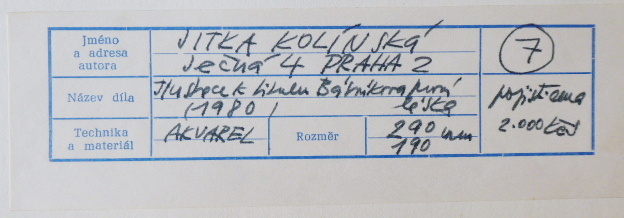 Jméno
a adresa
autora
JITKA KOLÍNSKÁ
JEČNÁ 4 PRAHA 2
7
Název díla
Ilustrace k titulu Básníkova první
(1980) láska
pojist. cena
2.000 Kčs
Technika
a materiál
AKVAREL
Rozměr
290 mm
190